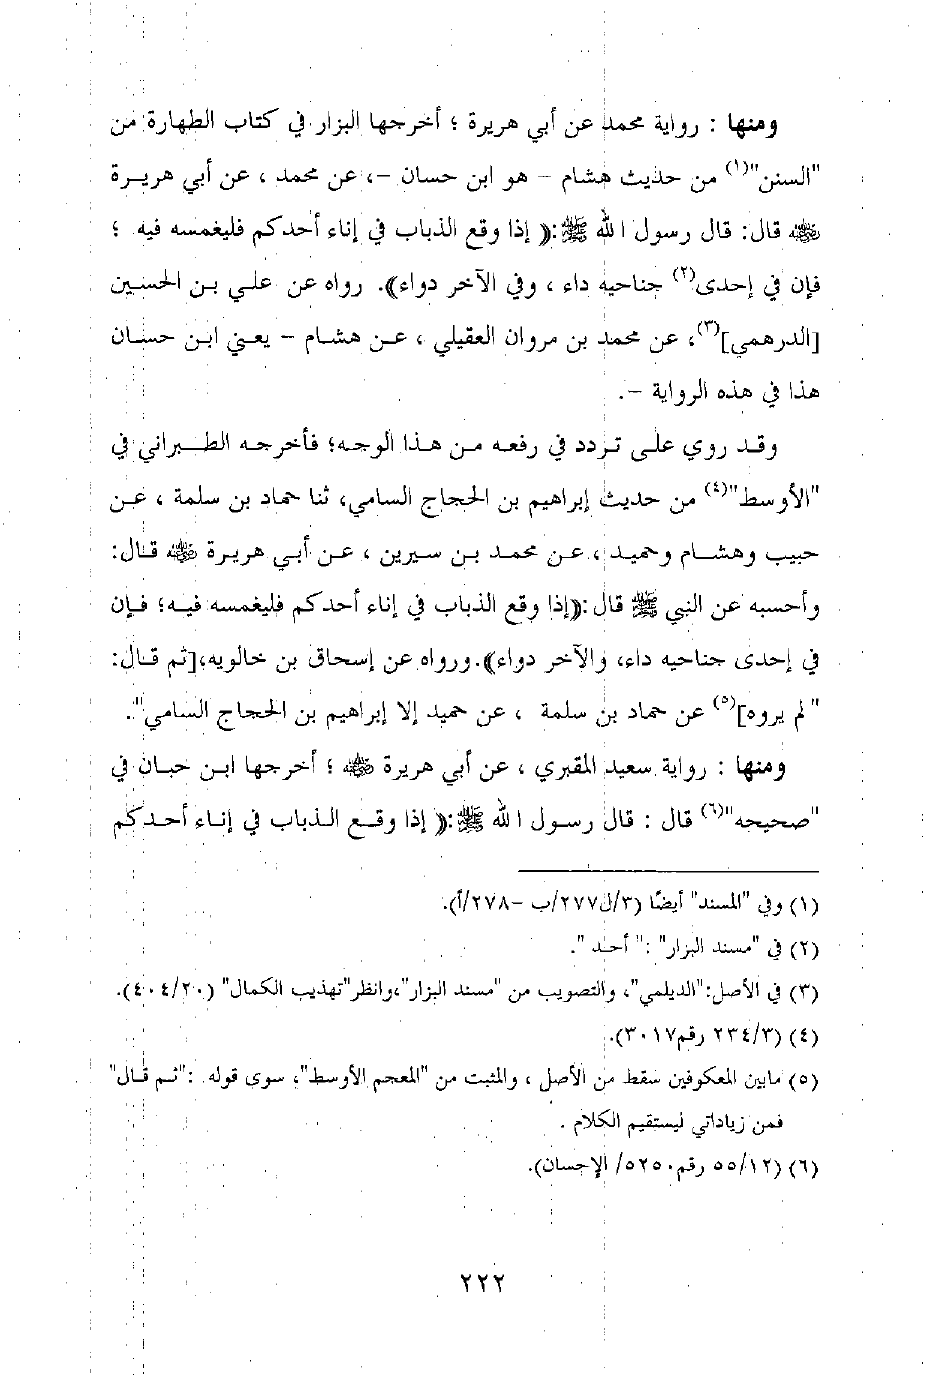 ومنها : رواية محمد عن أبي هريرة ؛ أخرجها البزار في كتاب الطهارة من
"السنن"(١) من حديث هشام – هو ابن حسان –، عن محمد ، عن أبي هريرة
ﷺ قال: قال رسول الله ﷺ:﴿ إذا وقع الذباب في إناء أحدكم فليغمسه فيه ؛
فإن في إحدى(٢) جناحيه داء ، وفي الآخر دواء﴾. رواه عن علي بن الحسين
[الدرهمي](٣)، عن محمد بن مروان العقيلي ، عن هشام – يعني ابن حسان
هذا في هذه الرواية –.
وقد روي على تردد في رفعه من هذا الوجه؛ فأخرجه الطبراني في
"الأوسط"(٤) من حديث إبراهيم بن الحجاج السامي، ثنا حماد بن سلمة ، عن
حبيب وهشام وحميد ، عن محمد بن سيرين ، عن أبي هريرة ﷺ قال:
وأحسبه عن النبي ﷺ قال:﴿إذا وقع الذباب في إناء أحدكم فليغمسه فيه؛ فإن
في إحدى جناحيه داء، والآخر دواء﴾.ورواه عن إسحاق بن خالويه،[ثم قال:
"لم يروه](٥) عن حماد بن سلمة ، عن حميد إلا إبراهيم بن الحجاج السامي".
ومنها : رواية سعيد المقبري ، عن أبي هريرة ﷺ ؛ أخرجها ابن حبان في
"صحيحه"(٦) قال : قال رسول الله ﷺ:﴿ إذا وقع الذباب في إناء أحدكم
(١) وفي "المسند" أيضًا (٣/ل٢٧٧/ب –٢٧٨/أ).
(٢) في "مسند البزار" :" أحد ".
(٣) في الأصل:"الديلمي"، والتصويب من "مسند البزار"،وانظر"تهذيب الكمال" (٤٠٤/٢٠).
(٤) (٢٣٤/٣ رقم٣٠١٧).
(٥) مابين المعكوفين سقط من الأصل ، والمثبت من "المعجم الأوسط"، سوى قوله :"ثم قال"
فمن زياداتي ليستقيم الكلام .
(٦) (٥٥/١٢ رقم٥٢٥٠/ الإحسان).
٢٢٢